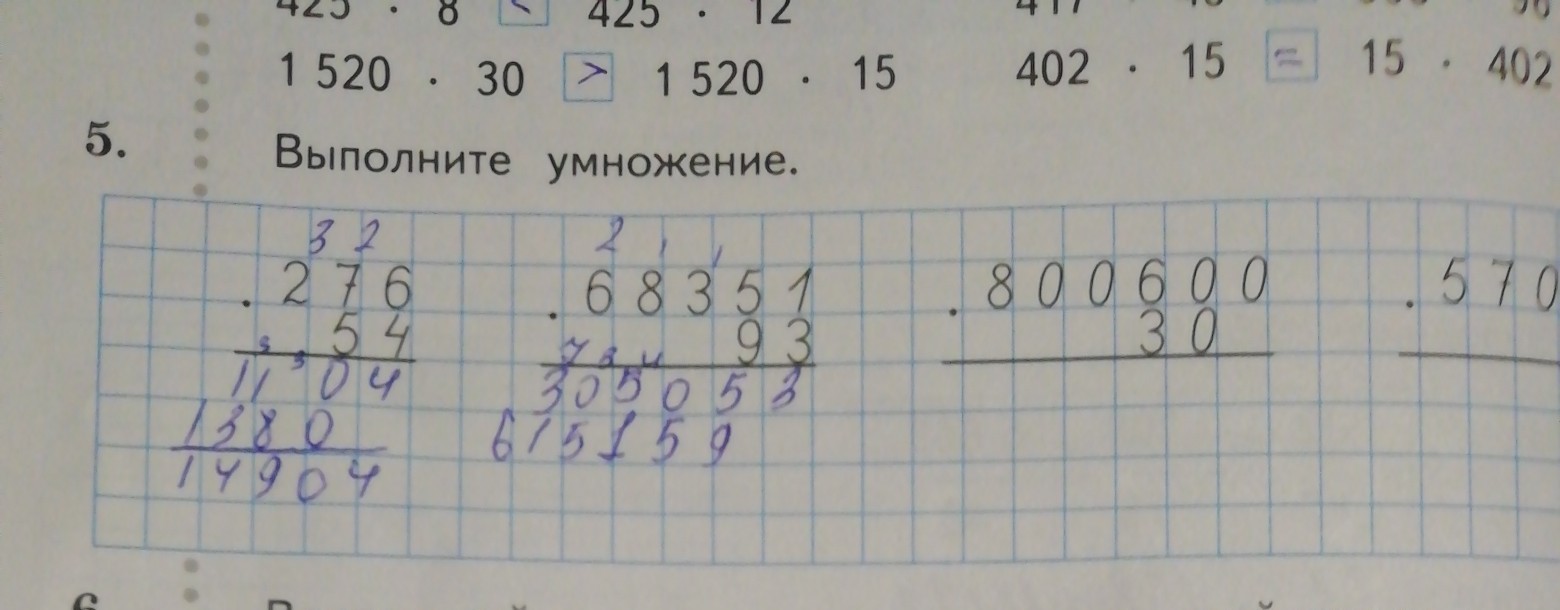 425 · 8 < 425 · 12
1 520 · 30 > 1 520 · 15
402 · 15 = 15 · 402
5.
Выполните умножение.
3 2
. 2 7 6
5 4
1 1 0 4
1 3 8 0
1 4 9 0 4
2 1 1
. 6 8 3 5 1
9 3
3 0 5 0 5 3
6 1 5 1 5 9
. 8 0 0 6 0 0
3 0
. 5 7 0